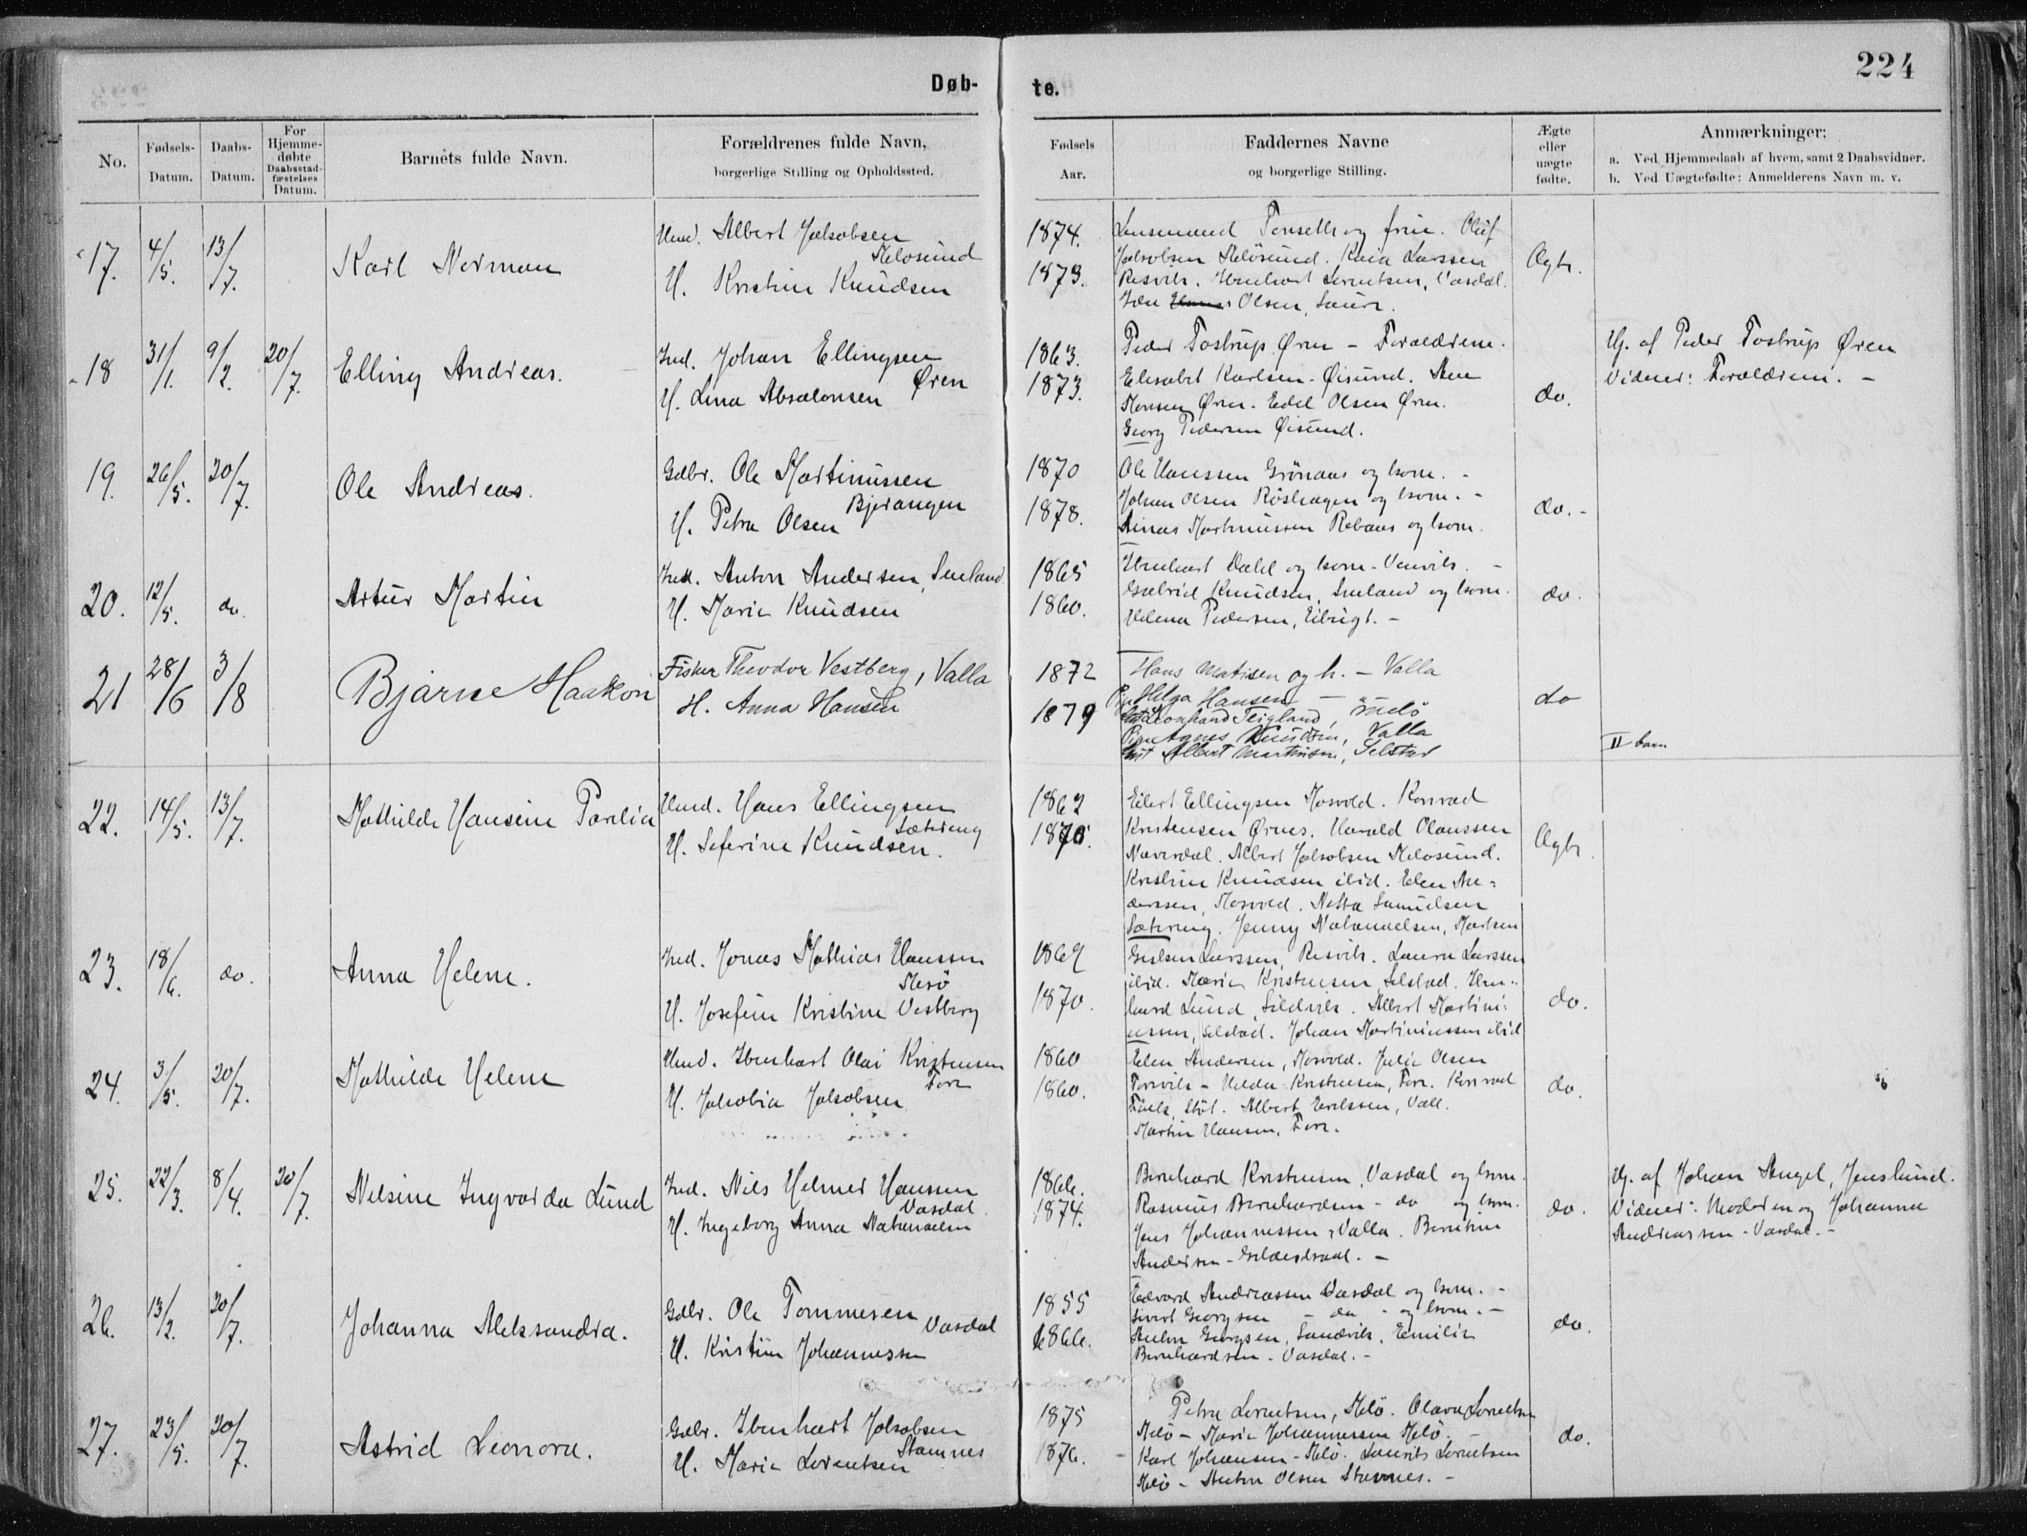 Døb-
te.
224
No.
Fødsels-
Datum.
Daabs-
Datum.
For
Hjemme-
døbte
Daabsstad-
fæstelses
Datum.
Barnets fulde Navn.
Forældrenes fulde Navn,
borgerlige Stilling og Opholdssted.
Fødsels
Aar.
Faddernes Navne
og borgerlige Stilling.
Ægte
eller
uægte
fødte.
Anmærkninger:
a. Ved Hjemmedaab af hvem, samt 2 Daabsvidner.
b. Ved Uægtefødte: Anmelderens Navn m. v.
17. 4/5. 13/7. Karl Norman
Albert Jakobsen
Meløsund
H. Kristine Knudsen
1874.
1873.
Lensmand Tonseth og frue. Oluf
Jakobsen Meløsund. Kaia Larssen
Resvik.
Olsen,
Ægte.
18 31/1. 9/2. 20/7. Elling Andreas.
Ind. Johan Ellingsen
Øren
H. Lina Absalonsen
1863.
1873.
Peder Tostrup Øren - Forældrene.
Elisabet Karlsen - Øisund. Ane
Monsen Øren. Edel Olsen Øren.
Georg Pedersen Øisund.
do.
Hj. af Peder Tostrup Øren
Vidner: Forældrene. -
19. 26/5. 20/7. Ole Andreas.
Gdbr. Ole Martinussen
Bjerangen
H. Petra Olsen
1870
1878.
Ole Hanssen Grönaas og kone. -
Johan Olsen Röshagen og kone. -
Martinussen Rebaas og kone.
do. -
20. 12/5. do. Artur Martin
Ind. Anton Andersen,
H. Marie Knudsen
1865
1860.
Ibenhart Dahl og kone -
Gabriel Knudsen, og kone.
Helena Pedersen,
do.
21 28/6 3/8 Bjarne Haakon
Fisker Theodor Vestberg, Valla
H. Anna Hansen
1872
1879
Hans Matisen og h. - Valla
Helga Hansen
Leonhard Teigland,
Agnes Knudsen, Valla
Albert Martinsen, Selstad
do
II barn
22. 14/5. 13/7. Mathilde Hansine Parelia
Hans Ellingsen
Sætereng
H. Seferine Knudsen.
1862
1870.
Eilert Ellingsen Mosvold. Konrad
Kristensen Ørnes. Harald Olaussen
Næverdal. Albert Jakobsen Meløsund.
Kristine Knudsen ibid. Elen An-
derssen, Mosvold. Netta Samuelsen
Sætereng. Jenny Natanaelsen,
Ægte
23. 18/6. do. Anna Helene.
Ind. Jonas Mathias Hanssen
Mesö
H. Josefine Kristine Vestberg
1869
1870.
Larssen, Resvik. Laura Larssen
ibid. Marie Kristensen Selstad.
Lund, Sildvik. Albert Martini-
ussen, Selstad. Johan Martiniussen ibid
do.
24. 3/5. 20/7. Mathilde Helene
Ibenhart Olai Kristensen
Fore
H. Jakobia Jakobsen
1860
1860.
Elen Andersen, Mosvold. Julie Olsen
Forevik - Helda Kristensen, Fore. Konrad
Stöt. Albert Eriksen,
Martin Hansen, Fore.
do.
25. 22/3. 8/4. 20/7. Nilsine Ingvarda Lund
Ind. Nils Helmer Hanssen
Vasdal
H. Ingeborg Anna
1866.
1874.
Bernhard Kristensen Vasdal og kone.
Rasmus Bernhardsen - do og kone.
Jens Johannessen, Valla. Berntine
Andersen -
do.
Hj. af Johan Angel, Jenslund.
Vidner: Moderen og Johanna
Andreassen - Vasdal. -
26. 13/2. 20/7. Johanna Aleksandra.
Gdbr. Ole Tommesen
Vasdal
H. Kristine Johannessen
1855
1866.
Edvard Andreassen Vasdal og kone. -
Sivert Georgsen - do - og kone. -
Georgsen, Sandvik, Emilie
Bernhardsen - Vasdal. -
do.
27. 23/5. 20/7. Astrid Leonora.
Gdbr. Ibenhart Jakobsen
Stamnes
H. Marie Lorentsen
1875
1876.
Petra Lorentsen, Melö. Olava Lorentsen
Melö - Marie Johannessen Melö. -
Karl Johansen - Melö. Laurits Lorentsen
Melö - Anton Olsen Stavnes. -
do.